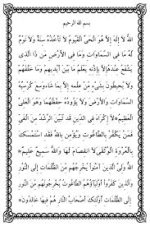 بسم الله الرحيم
اللهُ لَا إِلَهَ إِلَّا هُوَ الْحَيُّ الْقَيُّومُ لَا تَأْخُذُهُ سِنَةٌ وَلَا نَوْمٌ
لَهُ مَا فِي السَّمَاوَاتِ وَمَا فِي الْأَرْضِ مَنْ ذَا الَّذِي
يَشْفَعُ عِنْدَهُ إِلَّا بِإِذْنِهِ يَعْلَمُ مَا بَيْنَ أَيْدِيهِمْ وَمَا خَلْفَهُمْ
وَلَا يُحِيطُونَ بِشَيْءٍ مِنْ عِلْمِهِ إِلَّا بِمَا شَاءَ وَسِعَ كُرْسِيُّهُ
السَّمَاوَاتِ وَالْأَرْضَ وَلَا يَؤُودُهُ حِفْظُهُمَا وَهُوَ الْعَلِيُّ
الْعَظِيمُ لَا إِكْرَاهَ فِي الدِّينِ قَدْ تَبَيَّنَ الرُّشْدُ مِنَ الْغَيِّ
فَمَنْ يَكْفُرْ بِالطَّاغُوتِ وَيُؤْمِنْ بِاللهِ فَقَدِ اسْتَمْسَكَ
بِالْعُرْوَةِ الْوُثْقَى لَا انْفِصَامَ لَهَا وَاللهُ سَمِيعٌ عَلِيمٌ
اللهُ وَلِيُّ الَّذِينَ آمَنُوا يُخْرِجُهُمْ مِنَ الظُّلُمَاتِ إِلَى النُّورِ
وَالَّذِينَ كَفَرُوا أَوْلِيَاؤُهُمُ الطَّاغُوتُ يُخْرِجُونَهُمْ مِنَ النُّورِ
إِلَى الظُّلُمَاتِ أُولَئِكَ أَصْحَابُ النَّارِ هُمْ فِيهَا خَالِدُونَ